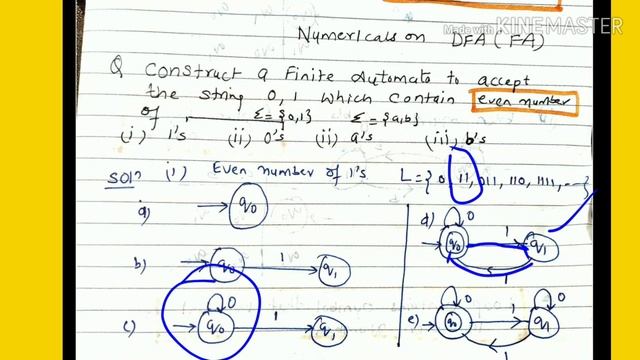 Made with KINEMASTER
Numericals on DFA (FA)
Q construct a Finite Automata to accept
the string 0, 1 which contain even number
of Σ={0,1} Σ={a,b}
(i) 1's (ii) 0's (ii) a's (iii) b's
Solⁿ (i) Even number of 1's L = { 0, 11, 011, 110, 1111, ---}
a) q0
b) q0 1 q1
c) 0 q0 1 q1
d) 0 q0 1 q1 1
e) 0 q0 1 q1 0 1